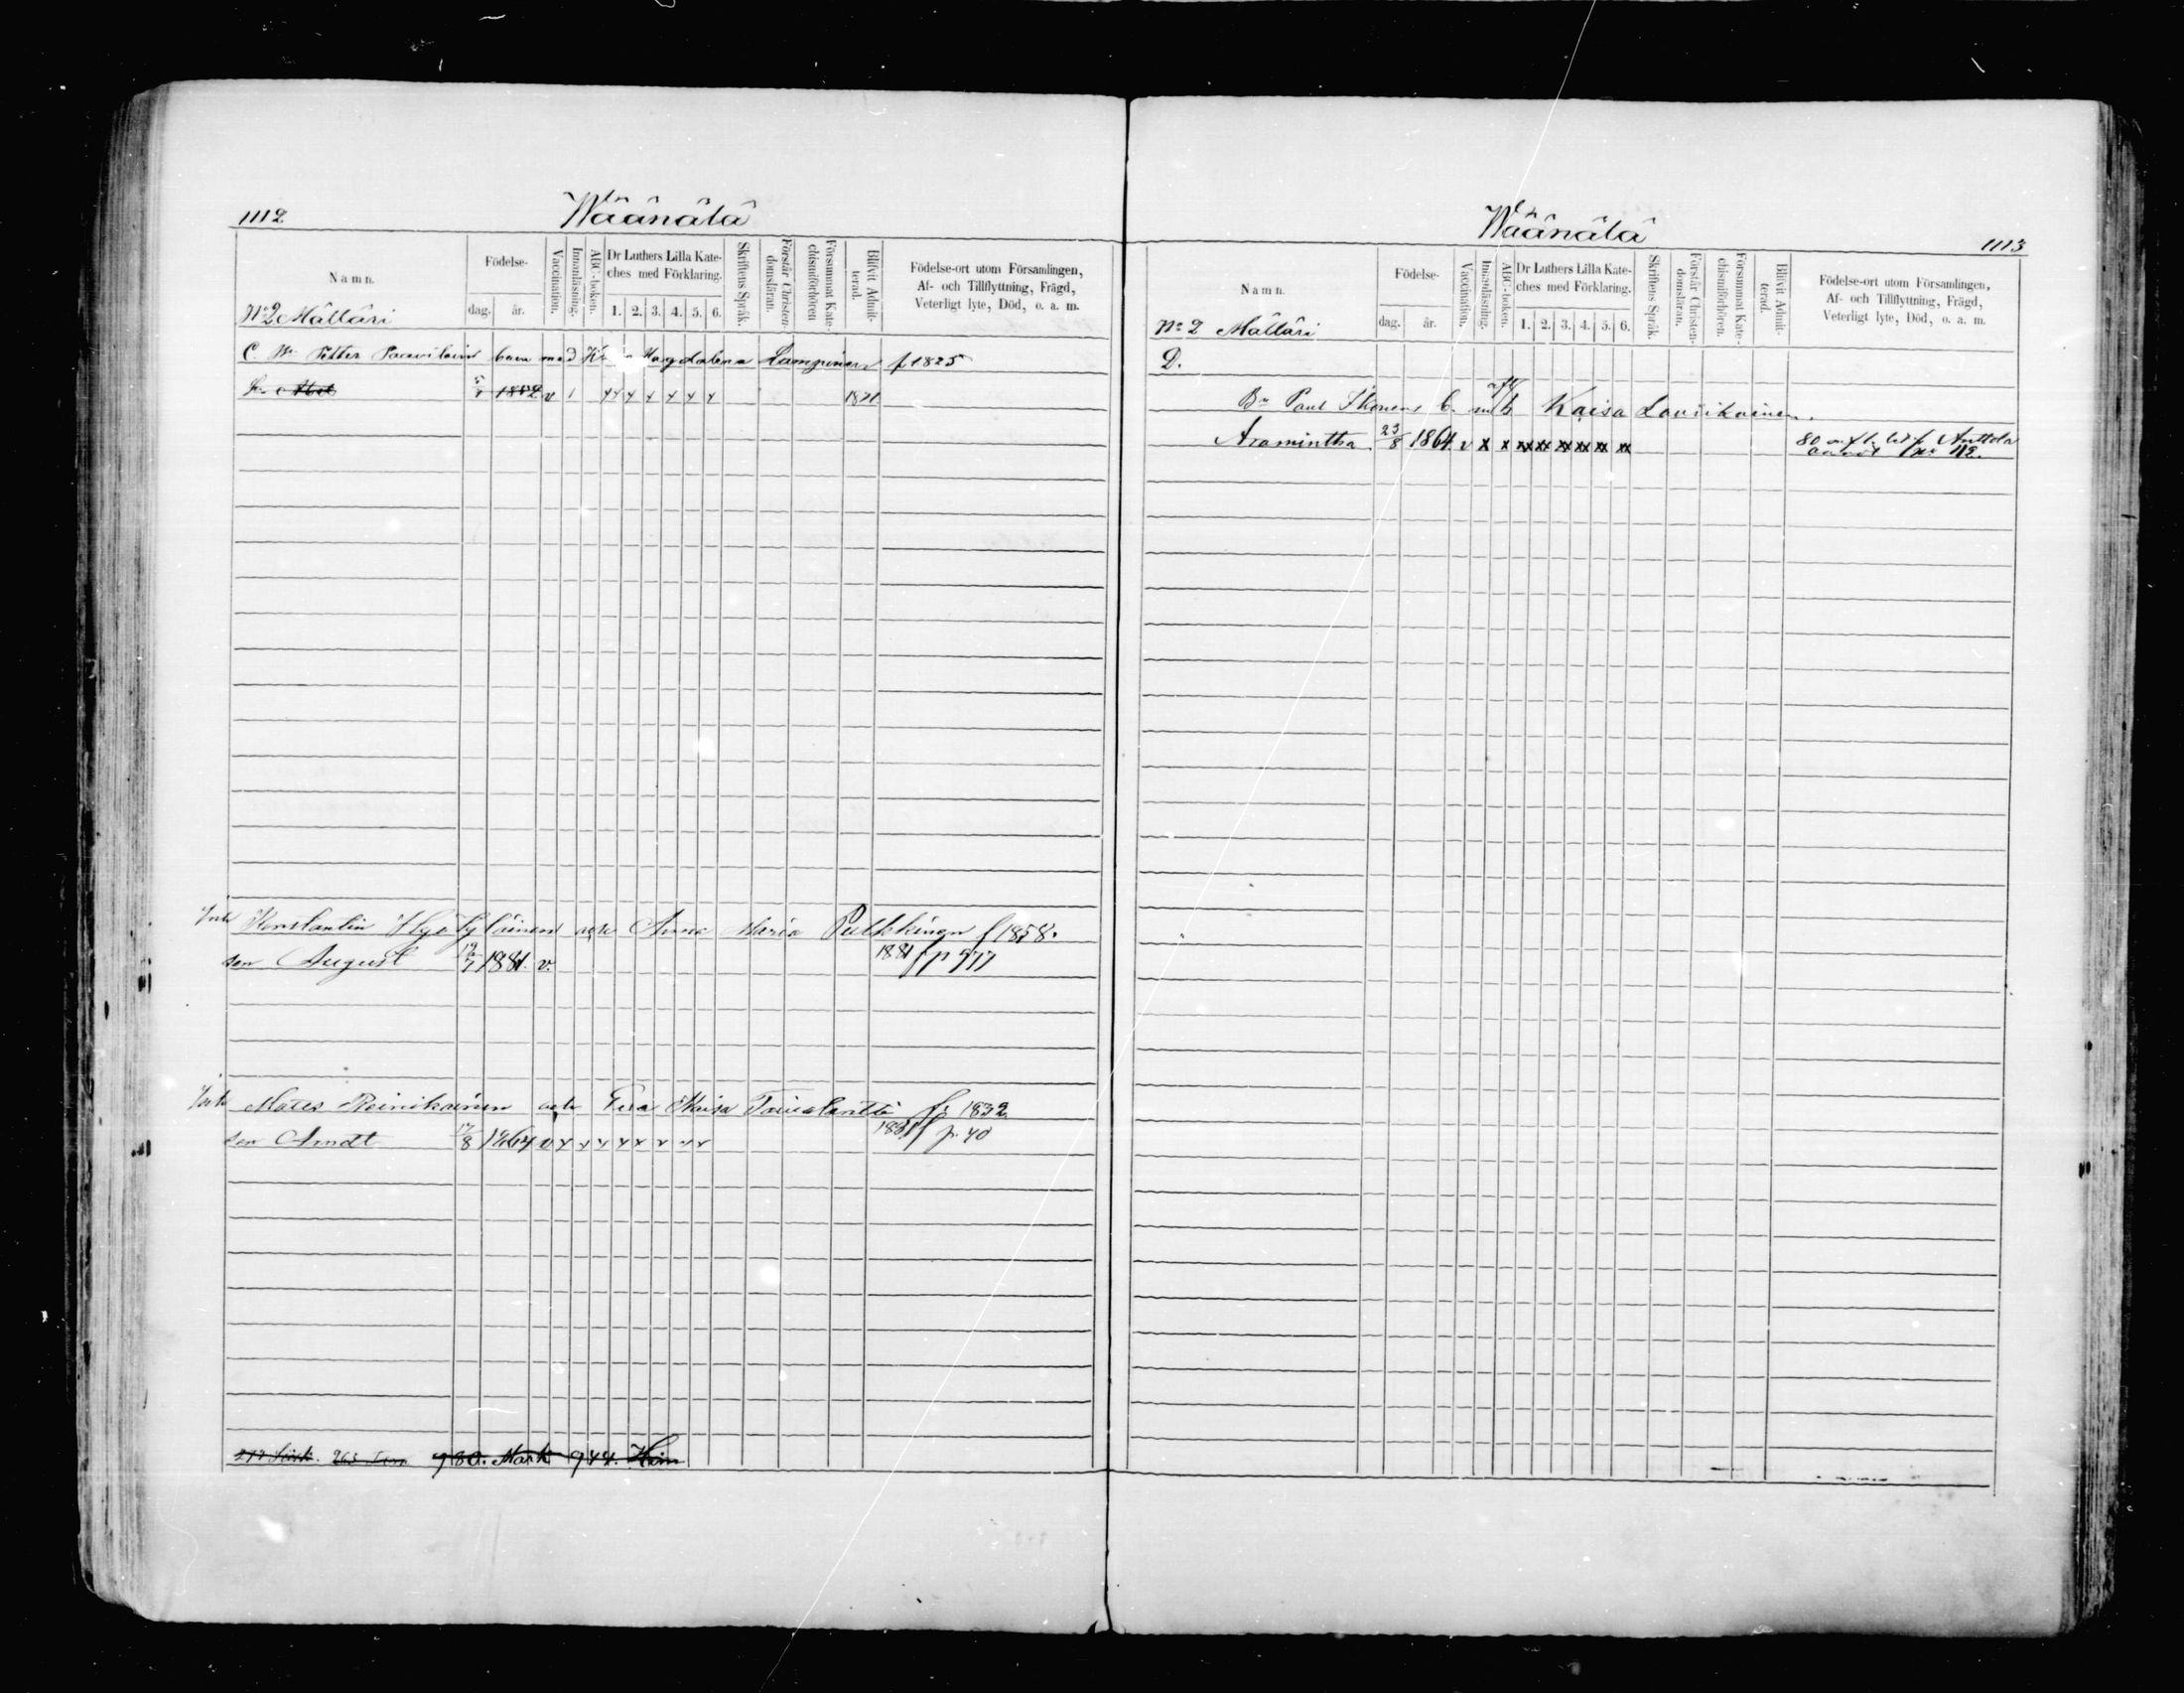 1112
Wäänälä
Namn.
Födelse-
dag.
år.
Vaccination.
Innanläsning.
ABC-boken.
Dr Luthers Lilla Kate-
ches med Förklaring.
1. 2. 3. 4. 5. 6.
Skriftens Språk.
Förstår Christen-
domsläran.
Försummat Kate-
chismiförhören
Blifvit Admit-
terad.
Födelse-ort utom Församlingen,
Af- och Tillflyttning, Frägd,
Veterligt lyte, Död, o. a. m.
No 2 Mälläri
C. Petter barn med Magdalena Lampinen f 1825
Abel 1852 v 1 x x x x x x 1871
Konstantin och Anna Maria Pulkkinen f 1858.
son August 1881. v. 1881 f p 977
Mats Reinikainen och Eva Kaisa f. 1832
son Arndt 17/8 1864 v x x x x x x x x x 1881 f p. 40
980. Mark 944.
Wäänälä
1113
Namn.
Födelse-
dag.
år.
Vaccination.
Innanläsning.
ABC-boken.
Dr Luthers Lilla Kate-
ches med Förklaring.
1. 2. 3. 4. 5. 6.
Skriftens Språk.
Förstår Christen-
domsläran.
Försummat Kate-
chismiförhören.
Blifvit Admit-
terad.
Födelse-ort utom Församlingen,
Af- och Tillflyttning, Frägd,
Veterligt lyte, Död, o. a. m.
No 2 Mälläri
D.
Bn Paul Ikonens b. Kaisa
Aramintha. 23/8 1864. v x x xx xx xx xx xx xx 80 Anttola